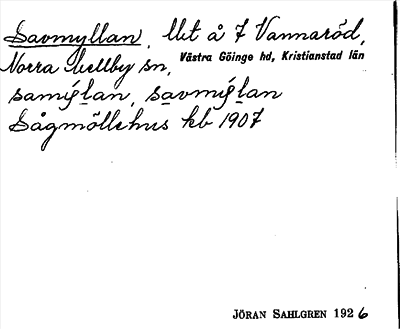 Savmyllan, Ut å 7 Vannaröd,
Norra Mellby sn, Västra Göinge hd, Kristianstad län
samýlan, savmýlan
Sågmöllehus kb 1907
JÖRAN SAHLGREN 1926